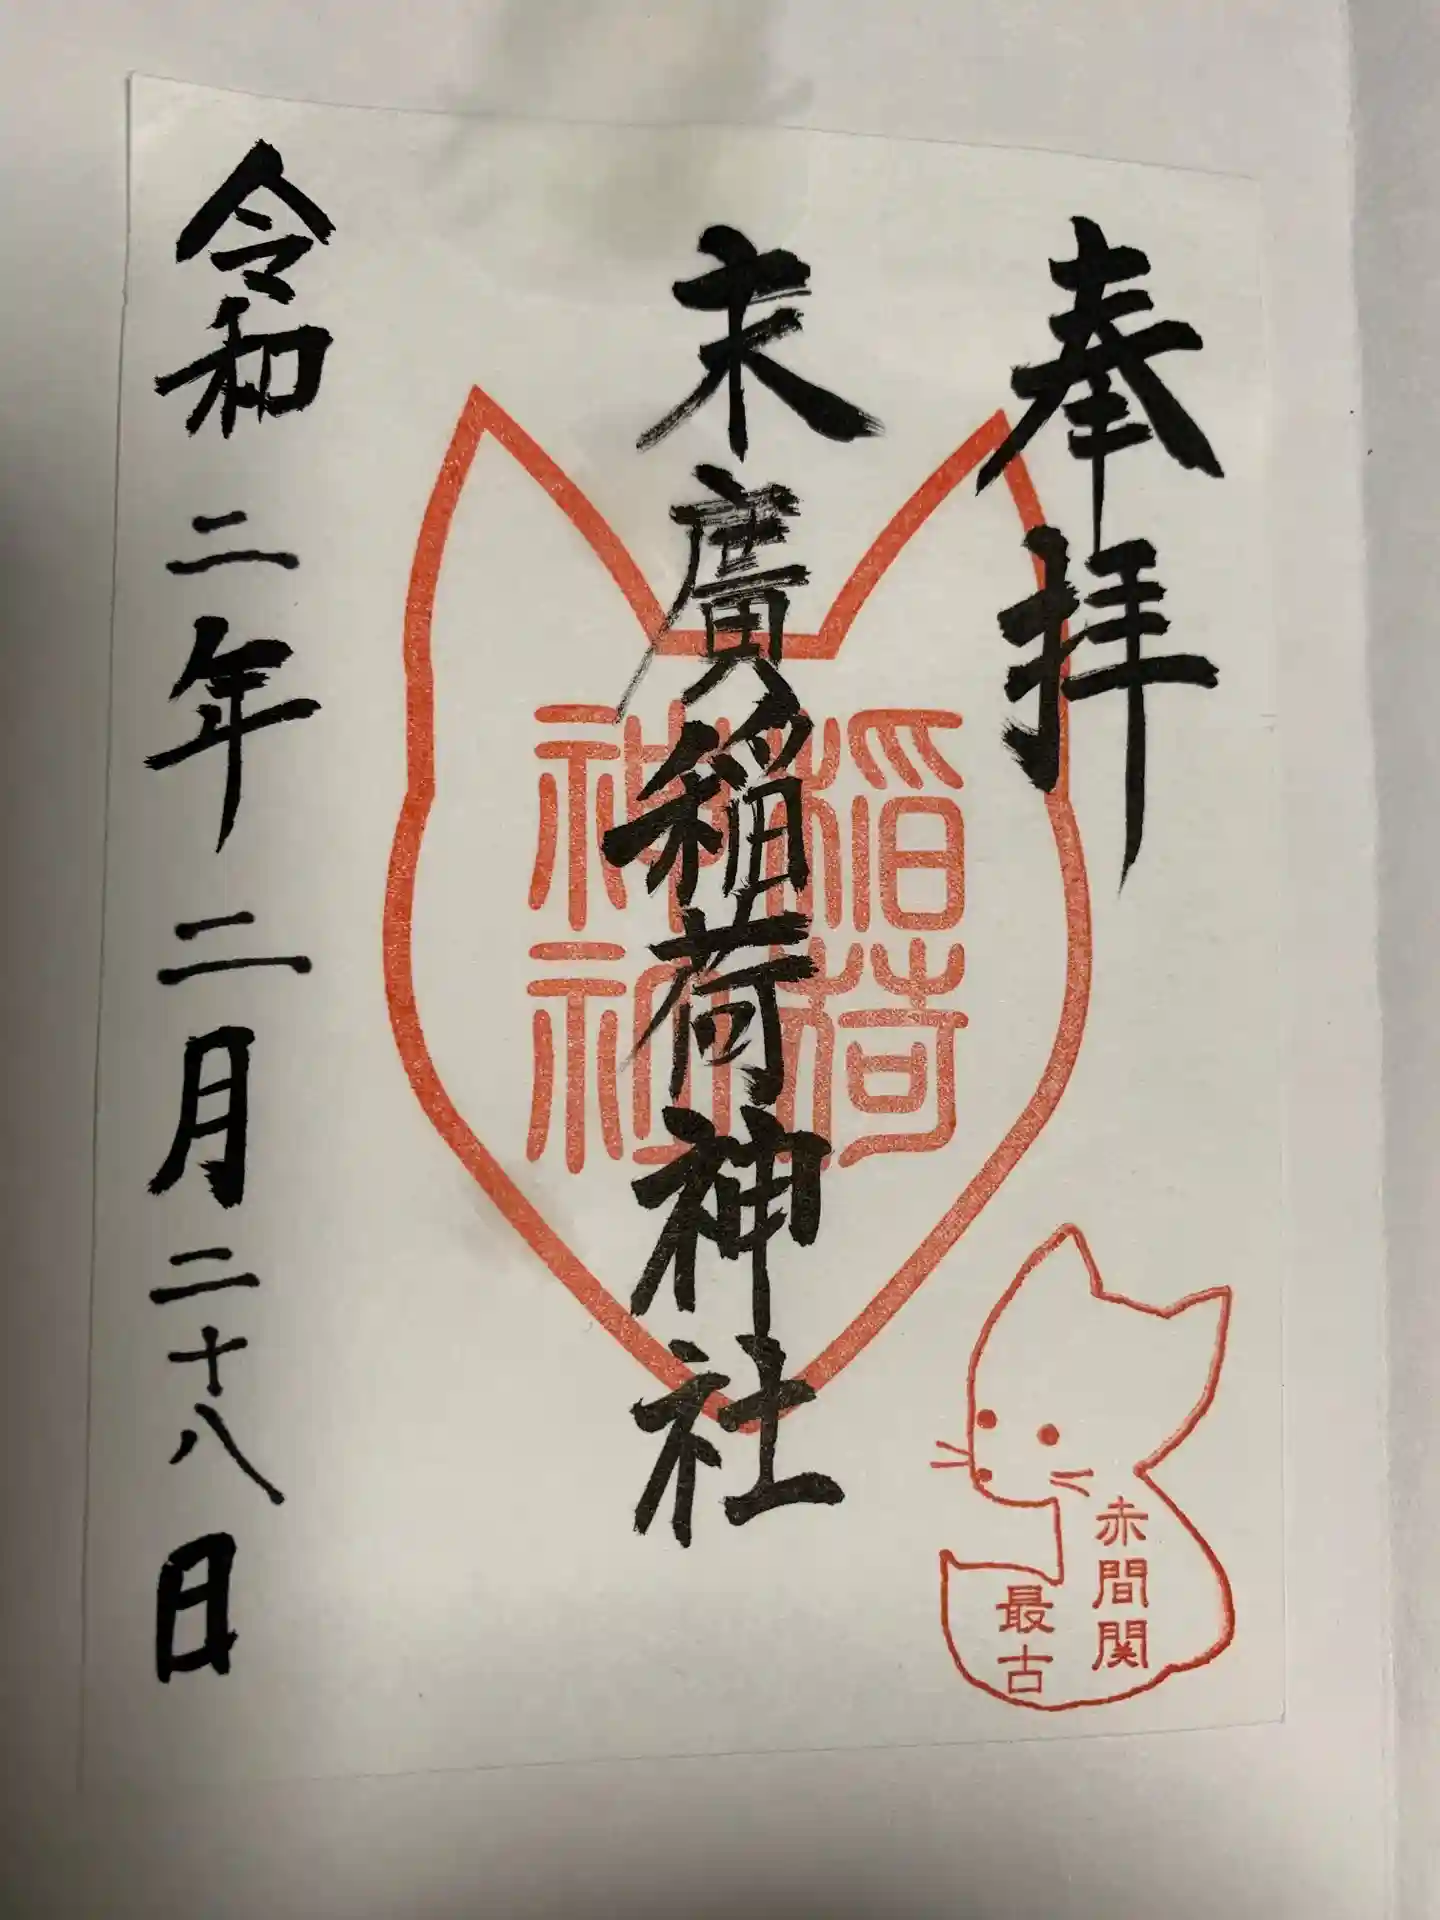 奉拝
末廣稲荷神社
令和二年二月二十八日
稲荷
神社
赤間関
最古